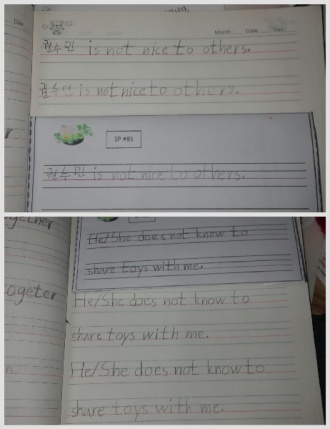 Date
Month Date
is not nice to others.
is not nice to others.
SP #85
is not nice to others.
together
ogeter
He/She does not know to
share toys with me.
He/She does not know to
share toys with me.
He/She does not know to
share toys with me.